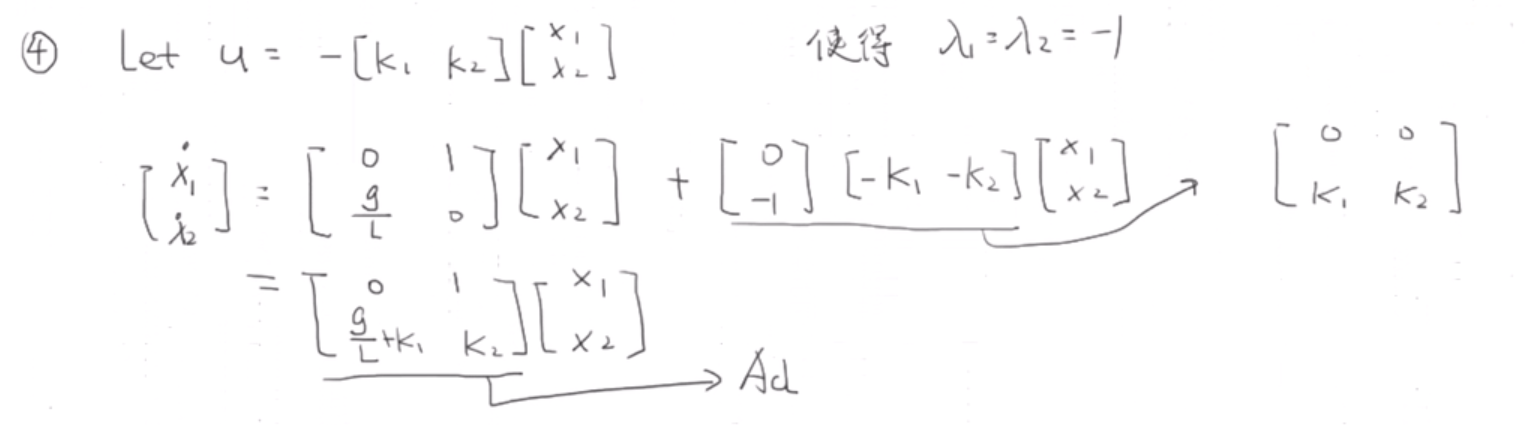 ④ Let u = -[k₁ k₂][x₁ x₂] 使得 λ₁=λ₂=-1
[ẋ₁ ẋ₂] = [0 1 g/L 0][x₁ x₂] + [0 -1][-k₁ -k₂][x₁ x₂] → [0 0 k₁ k₂]
= [0 1 g/L+k₁ k₂][x₁ x₂]
→ Acl